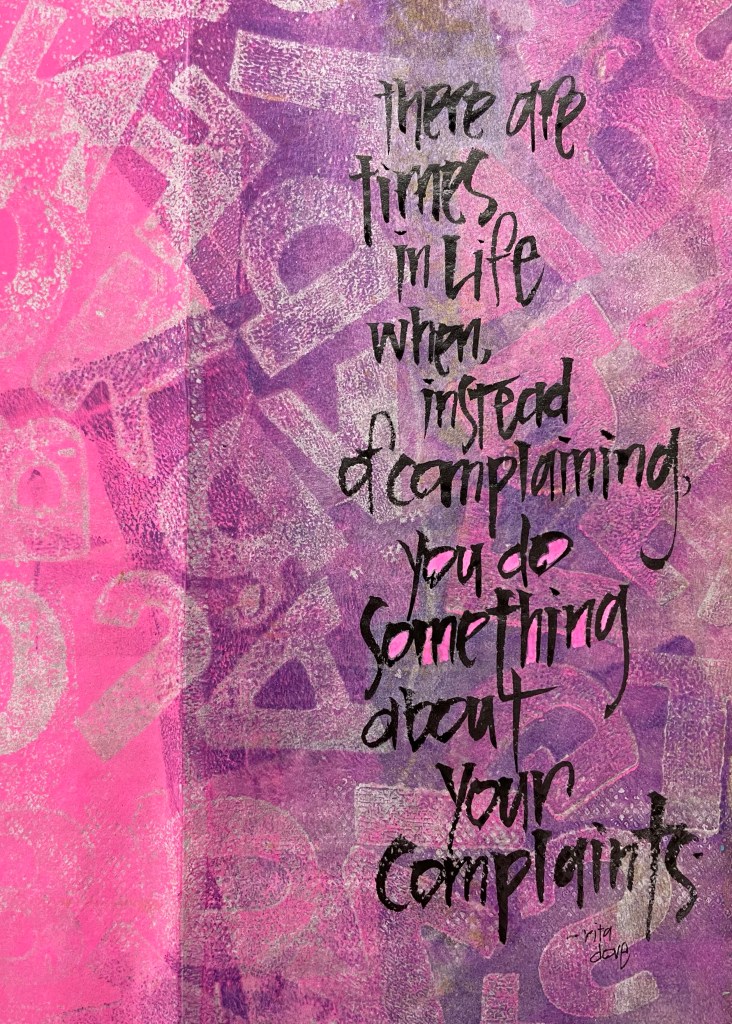 there are
times
in Life
when,
instead
of complaining,
you do
something
about
your
complaints.
- rita
dove